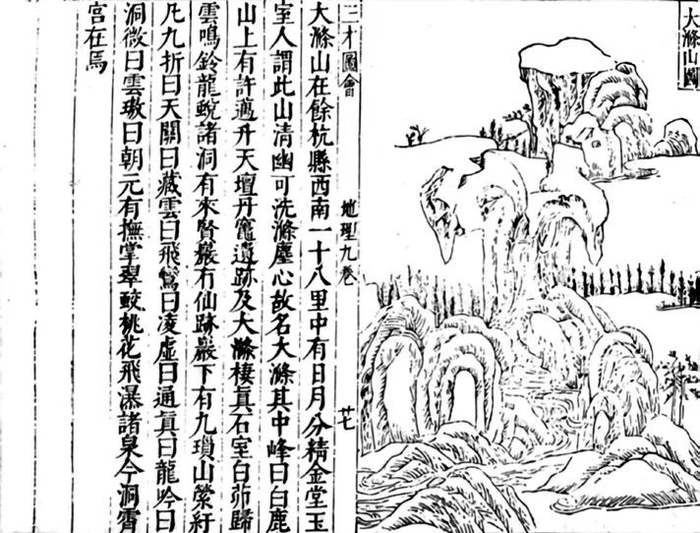 大滌山圖
三才圖會
地理九卷
廿七
大滌山在餘杭縣西南一十八里中有日月分精金堂玉
室人謂此山清幽可洗滌塵心故名大滌其中峰曰白鹿
山上有許邁升天壇丹竈遺跡及大滌棲真石室白茆歸
雲鳴鈴龍蛻諸洞有來賢巖有仙跡巖下有九瑣山縈紆
凡九折曰天關曰藏雲曰飛鸞曰凌虛曰通眞曰龍吟曰
洞微曰雲璈曰朝元有撫掌翠蛟桃花飛瀑諸泉今洞霄
宮在焉